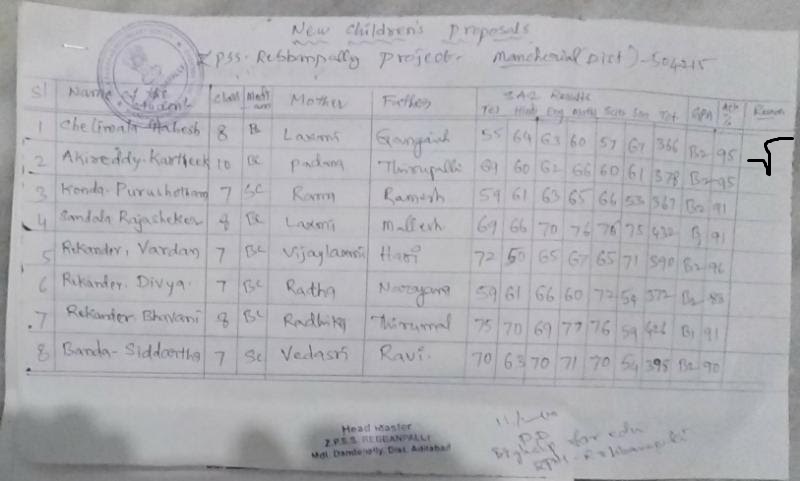 New Children's Proposals
ZPSS. Rebbanpally Project. Mancherial Dist)-504215
Sl Name of the Student Class Mother Father SA2 Results
Tel Hindi Eng Maths Scie Soci Tot GPA %
1 Chelimala Mahesh 8 Bc Laxmi Gangaiah 55 64 63 60 57 67 366 B2 95
2 Akireddy. Kartheek 10 Bc Padma Thirupathi 69 60 62 66 60 61 378 B2 95
3 Konda. Purushotham 7 Sc Rama Ramesh 59 61 63 65 66 53 367 B2 91
4 Sandala Rajasheker 8 Bc Laxmi Mallesh 69 66 70 76 76 75 432 B1 91
5 Rekander, Vardan 7 BC Vijaylaxmi Hari 72 50 65 67 65 71 390 B2 96
6 Rekander. Divya. 7 BC Radha Narayana 59 61 66 60 72 54 372 B2 88
7 Rekander. Bhavani 8 BC Radhika Thirumal 75 70 69 77 76 59 426 B1 91
8 Banda- Siddartha 7 Sc Vedasri Ravi. 70 63 70 71 70 54 395 B2 90
Head Master
Z.P.S.S. REBBANPALLI
Mdl. Dandepally, Dist. Adilabad
P.D
for edu